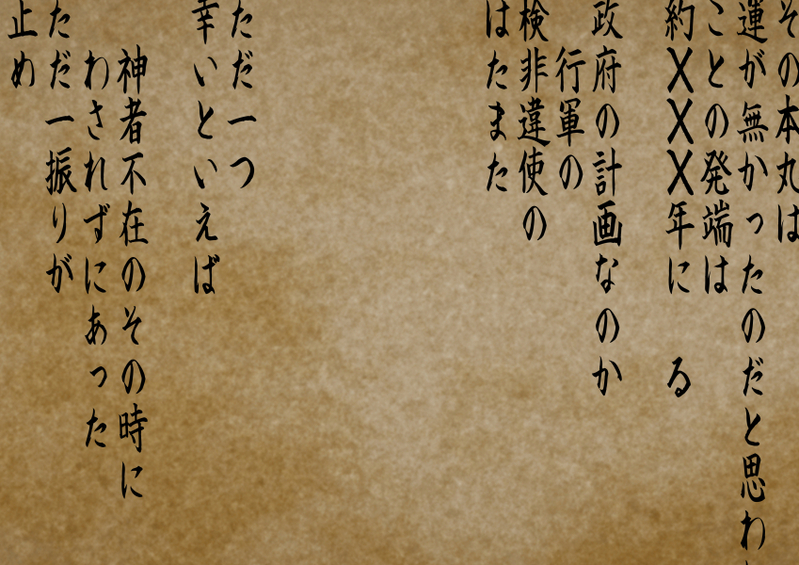 その本丸は
運が無かったのだと思わ
ことの発端は
約XXX年に　る
政府の計画なのか
行軍の
検非違使の
はたまた
ただ一つ
幸いといえば
神者不在のその時に
わされずにあった
ただ一振りが
止め